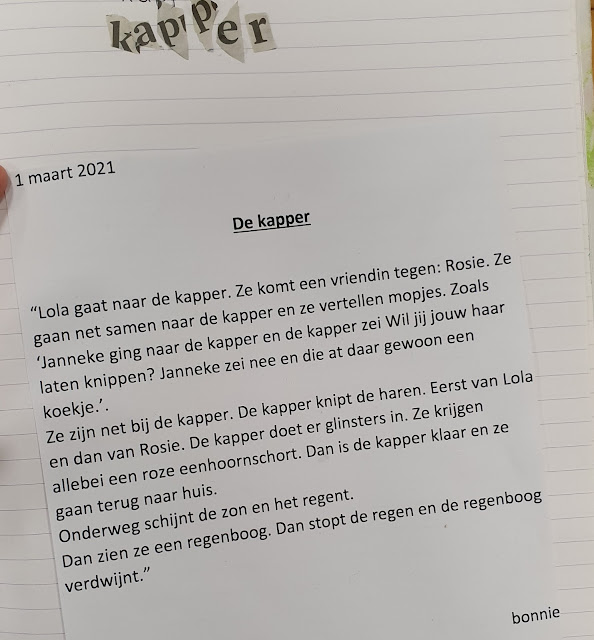 kapper
1 maart 2021
De kapper
“Lola gaat naar de kapper. Ze komt een vriendin tegen: Rosie. Ze
gaan net samen naar de kapper en ze vertellen mopjes. Zoals
‘Janneke ging naar de kapper en de kapper zei Wil jij jouw haar
laten knippen? Janneke zei nee en die at daar gewoon een
koekje.’.
Ze zijn net bij de kapper. De kapper knipt de haren. Eerst van Lola
en dan van Rosie. De kapper doet er glinsters in. Ze krijgen
allebei een roze eenhoornschort. Dan is de kapper klaar en ze
gaan terug naar huis.
Onderweg schijnt de zon en het regent.
Dan zien ze een regenboog. Dan stopt de regen en de regenboog
verdwijnt.”
bonnie